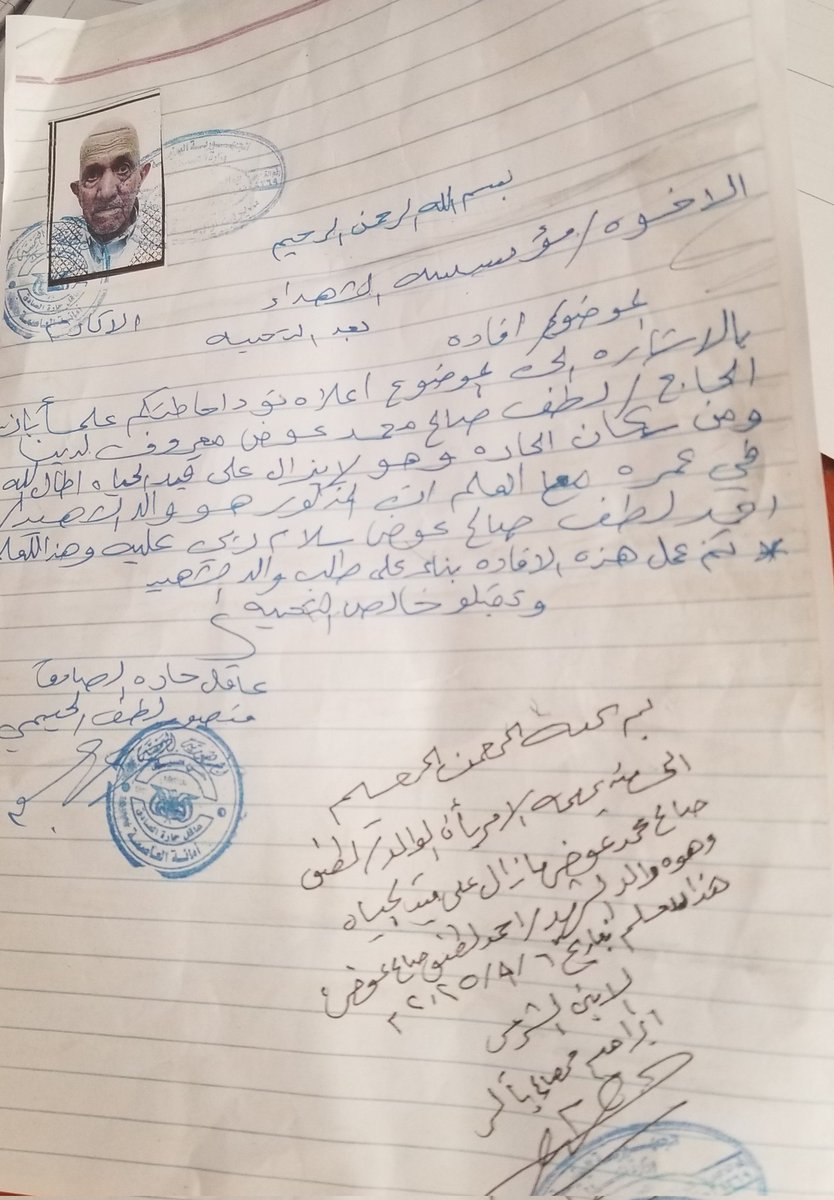 بسم الله الرحمن الرحيم
الاخوه / مؤسسه الشهداء
الاكارم
بعد التحيه
الموضوع / افاده
بالاشاره الى الموضوع اعلاه نود احاطتكم علماً بان
الحاج / لطف صالح محمد عوض معروف لدينا
ومن سكان الحاره وهو لايزال على قيد الحياه اطال الله
في عمره مع العلم ان المذكور هو والد الشهيد /
احمد لطف صالح عوض سلام ربي عليه وهذا
* تم عمل هذه الافاده بناء على طلب والد الشهيد
وتقبلو خالص التحيه
عاقل حاره الصادق
منصور لطف الحيمي
عاقل حارة الصادق
أمانة العاصمة
بسم الله الرحمن الرحيم
الامر بأن الوالد / لطف
صالح محمد عوض مازال على قيد الحياه
وهوه والد الشهيد / احمد لطف صالح عوض
هذا للعلم بتاريخ ٦ / ٨ / ٢٠٢٥م
الامين الشرعي
ابراهيم